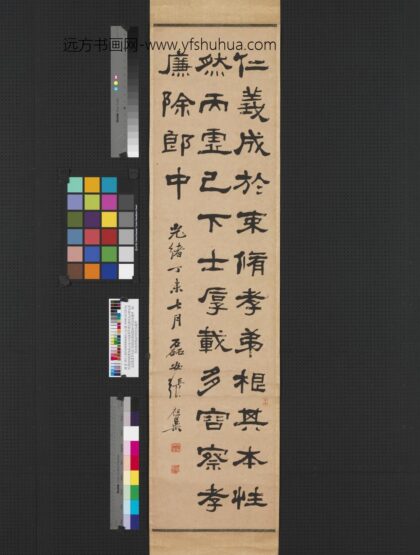 远方书画网-www.yfshuhua.com
仁義成於束脩孝弟根其本性
然而虛己下士厚載多容察孝
廉除郎中
光緒丁未七月磊盦張祖翼